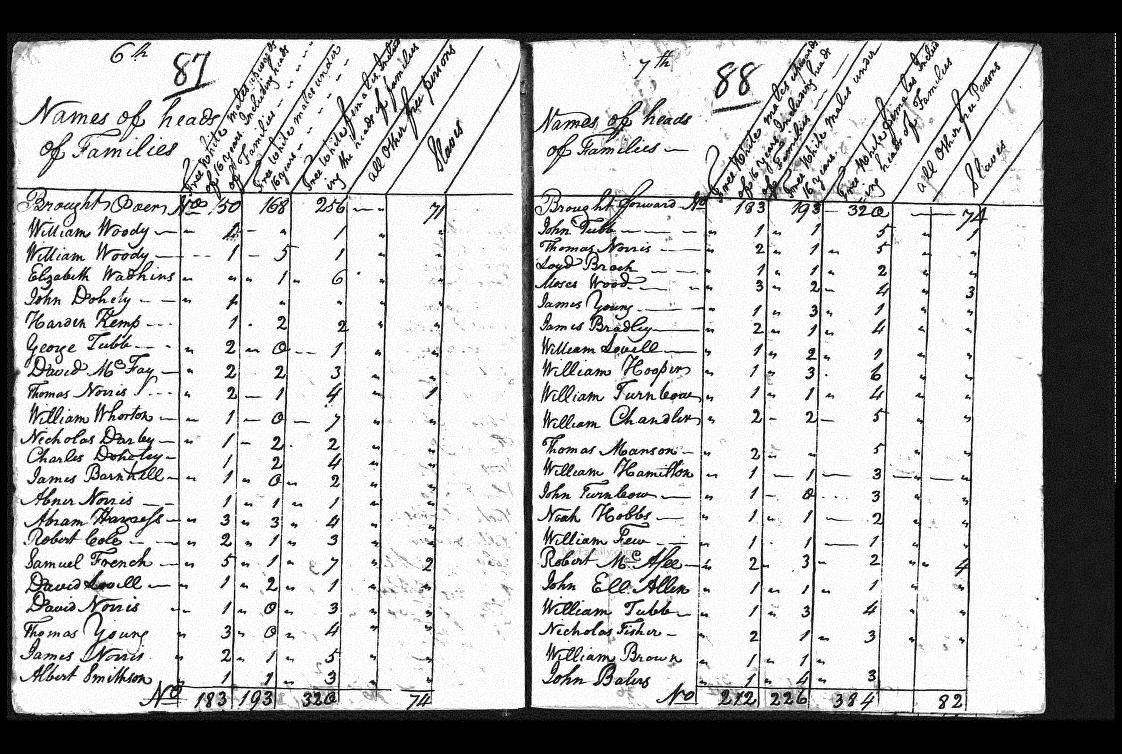 6th
87
Names of heads
of Families
Free White males upwards
of 16 years Including heads
of Families
Free White males under
16 years
Free White females Includ
ing the heads of families
all Other free persons
Slaves
Brought Over No 150 168 256 71
William Woody 1 " 1 "
William Woody 1 5 1 "
Elizabeth Watkins " 1 6 "
John Dohety 1 " " "
Harden Kemp 1 2 2 "
George Tubb 2 0 1 "
David McFay 2 2 3 "
Thomas Norris 2 1 4 1
William Whorton 1 0 7 "
Nicholas Darley 1 2 2 "
Charles Dohety 1 2 4 "
James Barnhill 1 0 2 "
Abner Norris 1 1 1 "
Abram 3 3 4 "
Robert Cole 2 1 3 "
Samuel French 5 1 7 2
David Lovill 1 2 1 "
David Norris 1 0 3 "
Thomas Young 3 0 4 "
James Norris 2 1 5 "
Albert Smithson 1 1 3 "
No 183 193 320 74
7th
88
Names of heads
of Families
Free White males upwards
of 16 years Including heads
of Families
Free White males under
16 years
Free White females Includ
ing heads of Families
all Other free Persons
Slaves
Brought forward No 183 193 320 74
John Tubb 1 1 5 1
Thomas Norris 2 1 5 "
Loyd Brock 1 1 2 "
Moses Wood 3 2 4 3
James Young 1 3 1 "
James Bradley 2 1 4 "
William Lovell 1 2 1 "
William Hooper 1 3 6 "
William Turnbow 1 1 4 "
William Chandler 2 2 5 "
Thomas Manson 2 " 5 "
William Hamilton 1 1 3 "
John Turnbow 1 0 3 "
Noah Hobbs 1 1 2 "
William Few 1 1 1 "
Robert McAfee 2 3 2 4
John Ell Allen 1 1 1 "
William Tubb 1 3 4 "
Nicholas Fisher 2 1 3 "
William Brown 1 1 "
John Balers 1 4 3
No 212 226 384 82